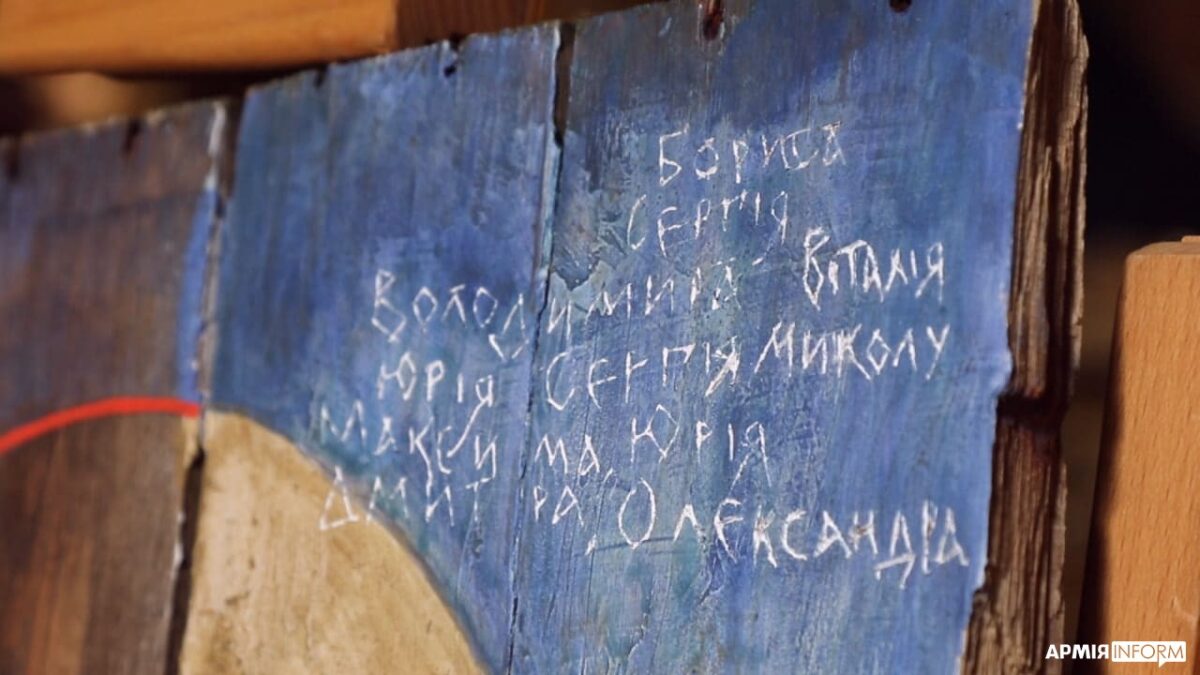 Бориса
Сергія
Володимира Віталія
Юрія Сергія Миколу
Максима, Юрія
Дмитра, Олександра
АРМІЯINFORM